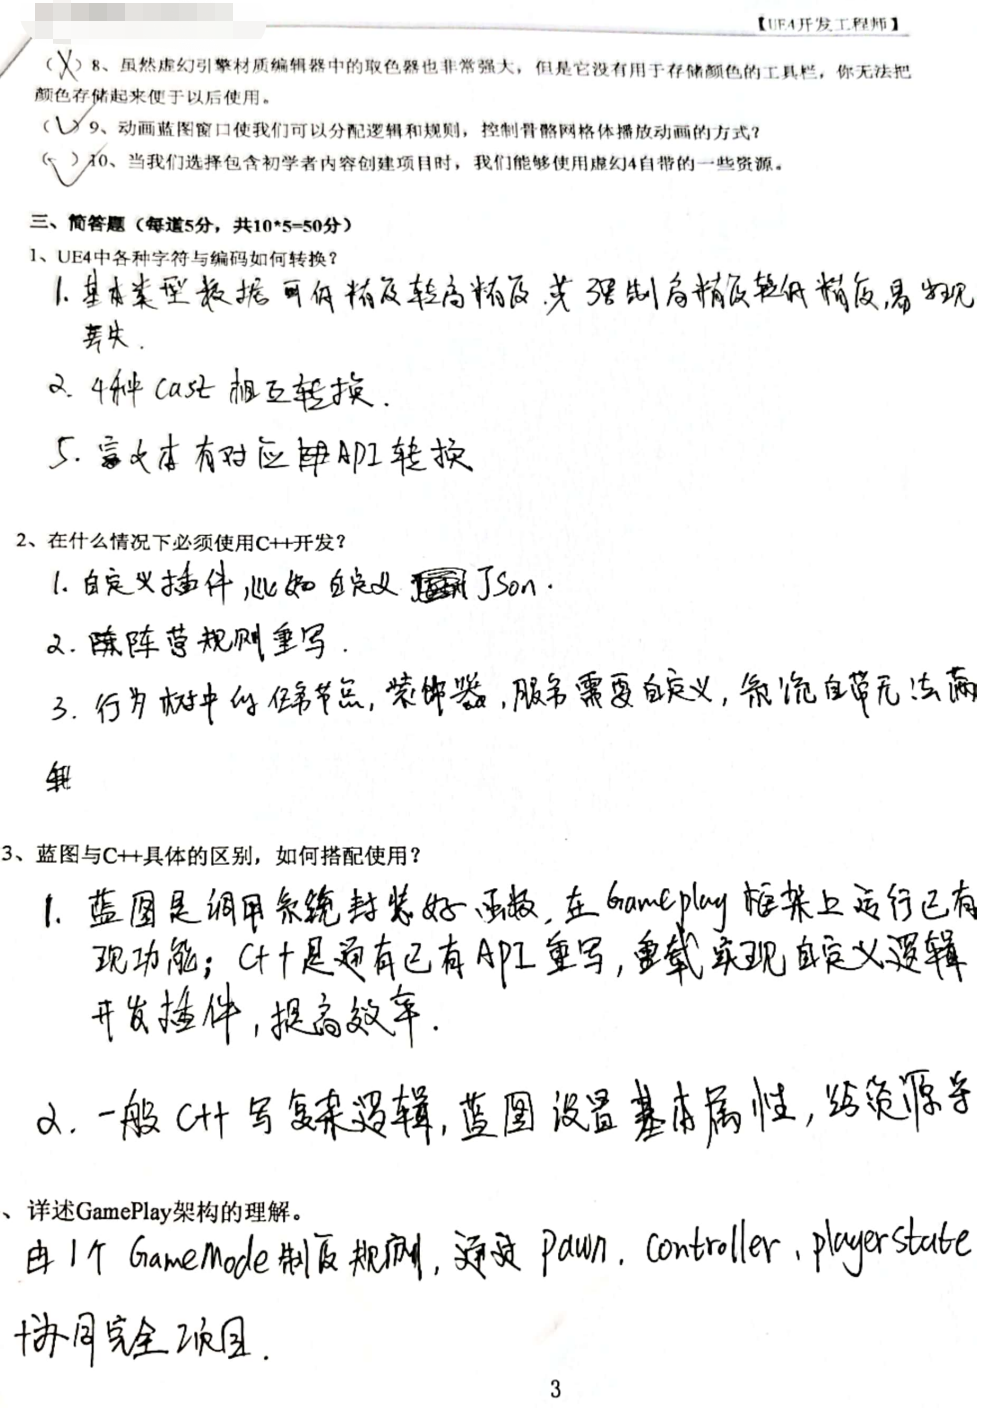 【UE4开发工程师】
（X）8、虽然虚幻引擎材质编辑器中的取色器也非常强大，但是它没有用于存储颜色的工具栏，你无法把
颜色存储起来便于以后使用。
（✓）9、动画蓝图窗口使我们可以分配逻辑和规则，控制骨骼网格体播放动画的方式？
（✓）10、当我们选择包含初学者内容创建项目时，我们能够使用虚幻4自带的一些资源。
三、简答题（每道5分，共10*5=50分）
1、UE4中各种字符与编码如何转换？
1. 基本类型数据可低精度转高精度.若强制高精度转低精度,易出现
丢失.
2. 4种cast相互转换.
5. 富文本有对应由API转换
2、在什么情况下必须使用C++开发？
1. 自定义插件,比如自定义 JSon.
2. 阵营规则重写.
3. 行为树中的任务节点,装饰器,服务需要自定义,系统自带无法满
3、蓝图与C++具体的区别，如何搭配使用？
1. 蓝图是调用系统封装好函数,在Gameplay框架上运行已有
现功能; C++是通有已有API重写,重载实现自定义逻辑
开发插件,提高效率.
2. 一般C++写复杂逻辑,蓝图设置基本属性,给资源等
、详述GamePlay架构的理解。
由1个GameMode制定规则,通过pawn.controller.playerstate
协同完全项目.
3